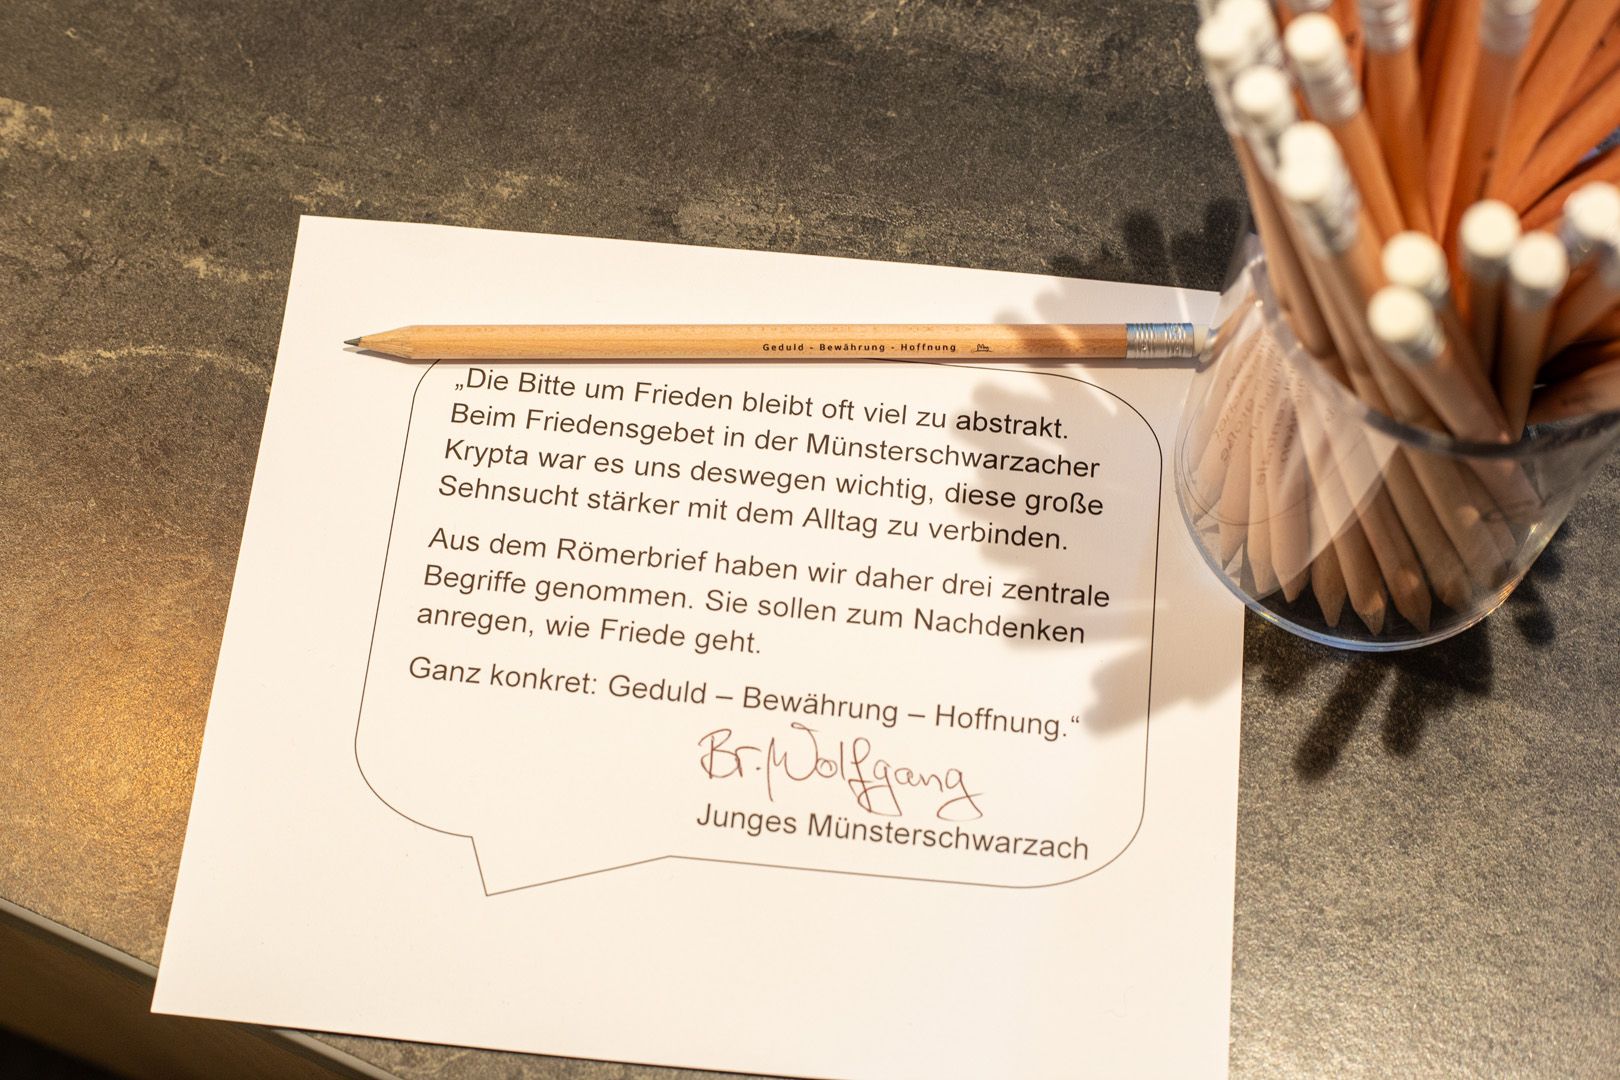 Geduld - Bewährung - Hoffnung
„Die Bitte um Frieden bleibt oft viel zu abstrakt.
Beim Friedensgebet in der Münsterschwarzacher
Krypta war es uns deswegen wichtig, diese große
Sehnsucht stärker mit dem Alltag zu verbinden.
Aus dem Römerbrief haben wir daher drei zentrale
Begriffe genommen. Sie sollen zum Nachdenken
anregen, wie Friede geht.
Ganz konkret: Geduld – Bewährung – Hoffnung.“
Br. Wolfgang
Junges Münsterschwarzach